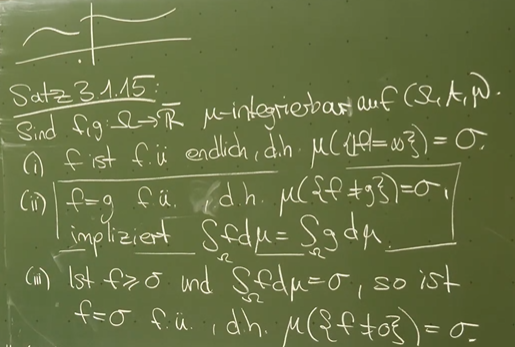 Satz 3.1.15:
Sind f,g: Ω→R̅ μ-integrierbar auf (Ω, A, μ).
(i) f ist f.ü. endlich, d.h. μ({|f|=∞}) = 0.
(ii) f=g f.ü., d.h. μ({f≠g})=0,
impliziert ∫_Ω f dμ = ∫_Ω g dμ.
(iii) Ist f≥0 und ∫_Ω f dμ = 0, so ist
f=0 f.ü., d.h. μ({f≠0}) = 0.